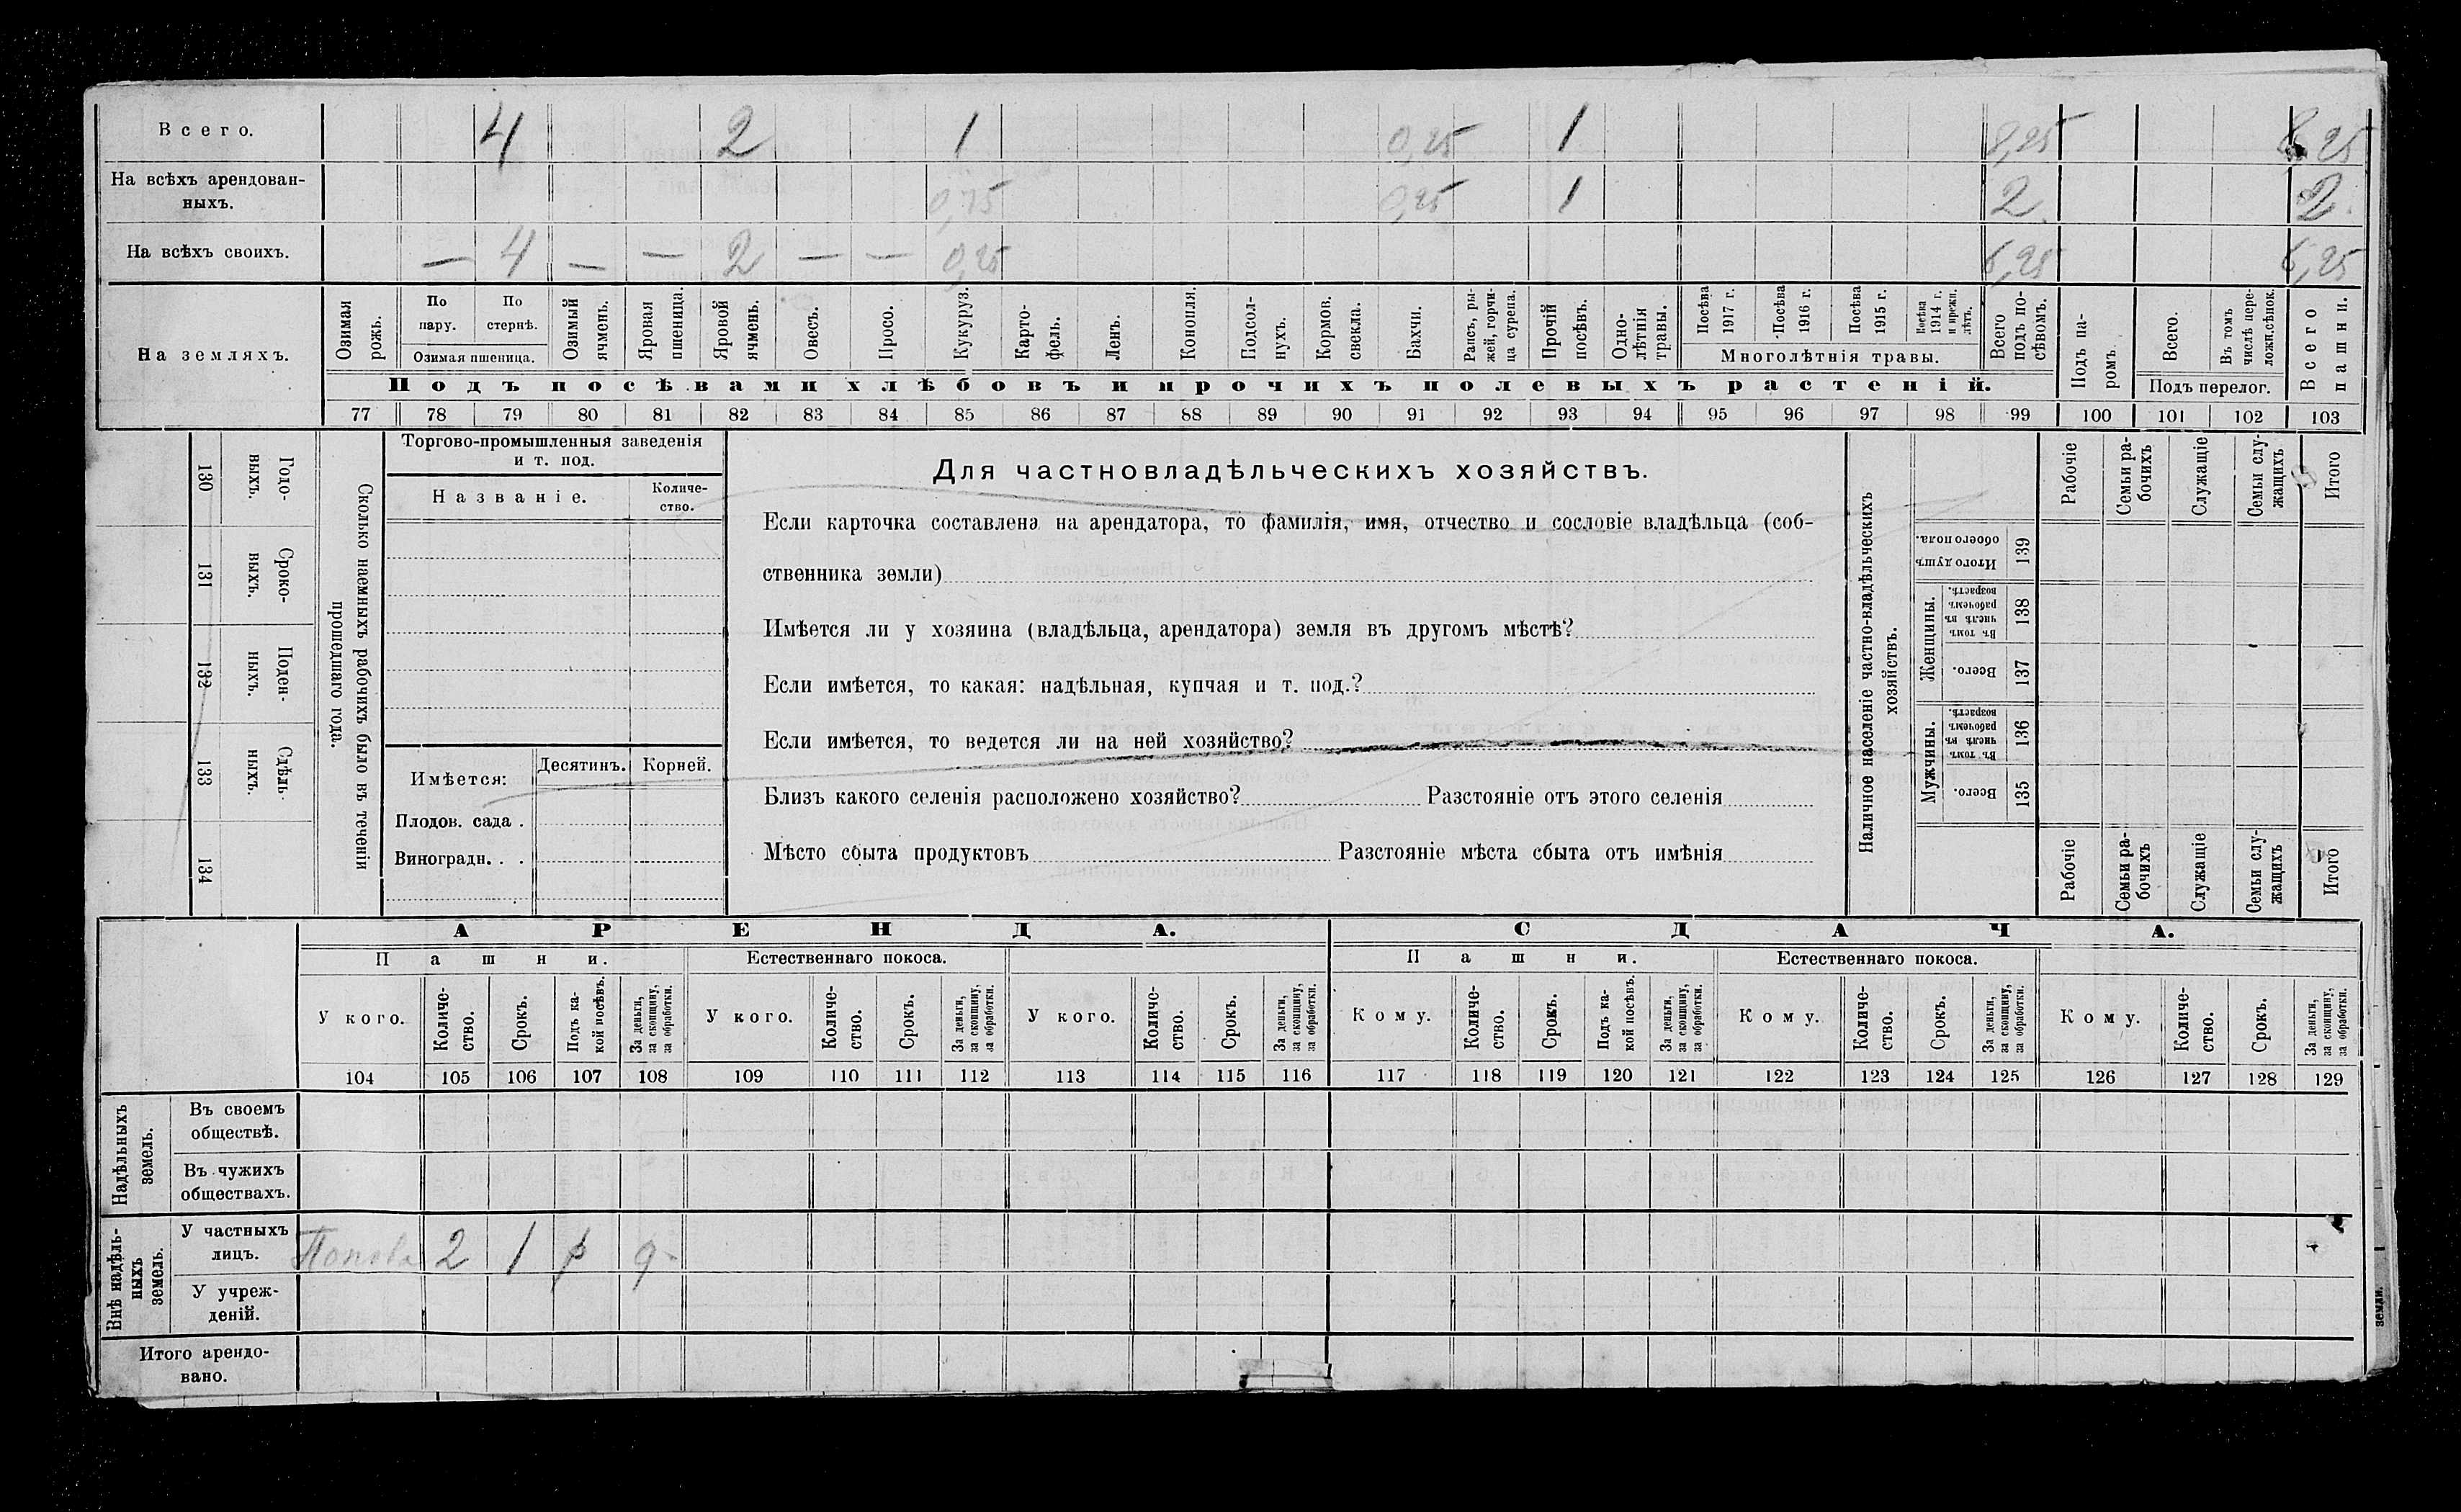 Всего. 4 2 1 0,25 1 8,25 8,25
На всѣхъ арендован-
ныхъ. 0,75 0,25 1 2 2
На всѣхъ своихъ. — 4 — — 2 — — 0,25 6,25 6,25
На земляхъ.
Озимая
рожь.
По
пару.
По
стернѣ.
Озимая пшеница.
Озимый
ячмень.
Яровая
пшеница.
Яровой
ячмень.
Овесъ.
Просо.
Кукуруз.
Карто-
фель.
Ленъ.
Конопля.
Подсол-
нухъ.
Кормов.
свекла.
Бахчи.
Рапсъ, ры-
жей, горчи-
ца сурепа.
Прочій
посѣвъ.
Одно-
лѣтнія
травы.
Посѣва
1917 г.
Посѣва
1916 г.
Посѣва
1915 г.
Посѣва
1914 г.
и прежн.
лѣтъ.
Многолѣтнія травы.
Всего
подъ по-
сѣвомъ.
Подъ па-
ромъ.
Всего.
Въ томъ
числѣ пере-
ложн.сѣнок.
Подъ перелог.
Всего
пашни.
Подъ посѣвами хлѣбовъ и прочихъ полевыхъ растеній.
77 78 79 80 81 82 83 84 85 86 87 88 89 90 91 92 93 94 95 96 97 98 99 100 101 102 103
130
Годо-
выхъ.
131
Сроко-
выхъ.
132
Поден-
ныхъ.
133
Сдѣль-
ныхъ.
134
Сколько наемныхъ рабочихъ было въ теченіи
прошедшаго года.
Торгово-промышленныя заведенія
и т. под.
Названіе.
Количе-
ство.
Имѣется:
Десятинъ.
Корней.
Плодов. сада .
Виноградн. . .
Для частновладѣльческихъ хозяйствъ.
Если карточка составлена на арендатора, то фамилія, имя, отчество и сословіе владѣльца (соб-
ственника земли)
Имѣется ли у хозяина (владѣльца, арендатора) земля въ другомъ мѣстѣ?
Если имѣется, то какая: надѣльная, купчая и т. под.?
Если имѣется, то ведется ли на ней хозяйство?
Близъ какого селенія расположено хозяйство? Разстояніе отъ этого селенія
Мѣсто сбыта продуктовъ Разстояніе мѣста сбыта отъ имѣнія
Наличное населеніе частно-владѣльческихъ
хозяйствъ.
Рабочіе
Семьи ра-
бочихъ
Служащіе
Семьи слу-
жащихъ
Итого
Итого душъ
обоего пола.
139
Женщины.
Въ томъ
числѣ въ
рабочемъ
возрастѣ.
138
Всего.
137
Мужчины.
Въ томъ
числѣ въ
рабочемъ
возрастѣ.
136
Всего.
135
Рабочіе
Семьи ра-
бочихъ
Служащіе
Семьи слу-
жащихъ
Итого
АРЕНДА.
СДАЧА.
Пашни.
Естественнаго покоса.
Пашни.
Естественнаго покоса.
У кого.
Количе-
ство.
Срокъ.
Подъ ка-
кой посѣвъ.
За деньги,
за скопщину,
за обработки.
У кого.
Количе-
ство.
Срокъ.
За деньги,
за скопщину,
за обработки.
У кого.
Количе-
ство.
Срокъ.
За деньги,
за скопщину,
за обработки.
Кому.
Количе-
ство.
Срокъ.
Подъ ка-
кой посѣвъ.
За деньги,
за скопщину,
за обработки.
Кому.
Количе-
ство.
Срокъ.
За деньги,
за скопщину,
за обработки.
Кому.
Количе-
ство.
Срокъ.
За деньги,
за скопщину,
за обработки.
104 105 106 107 108 109 110 111 112 113 114 115 116 117 118 119 120 121 122 123 124 125 126 127 128 129
Надѣльныхъ
земель.
Въ своемъ
обществѣ.
Въ чужихъ
обществахъ.
Внѣ надѣль-
ныхъ
земель.
У частныхъ
лицъ.
Попова 2 1 р д.
У учреж-
деній.
Итого арендо-
вано.
земли.